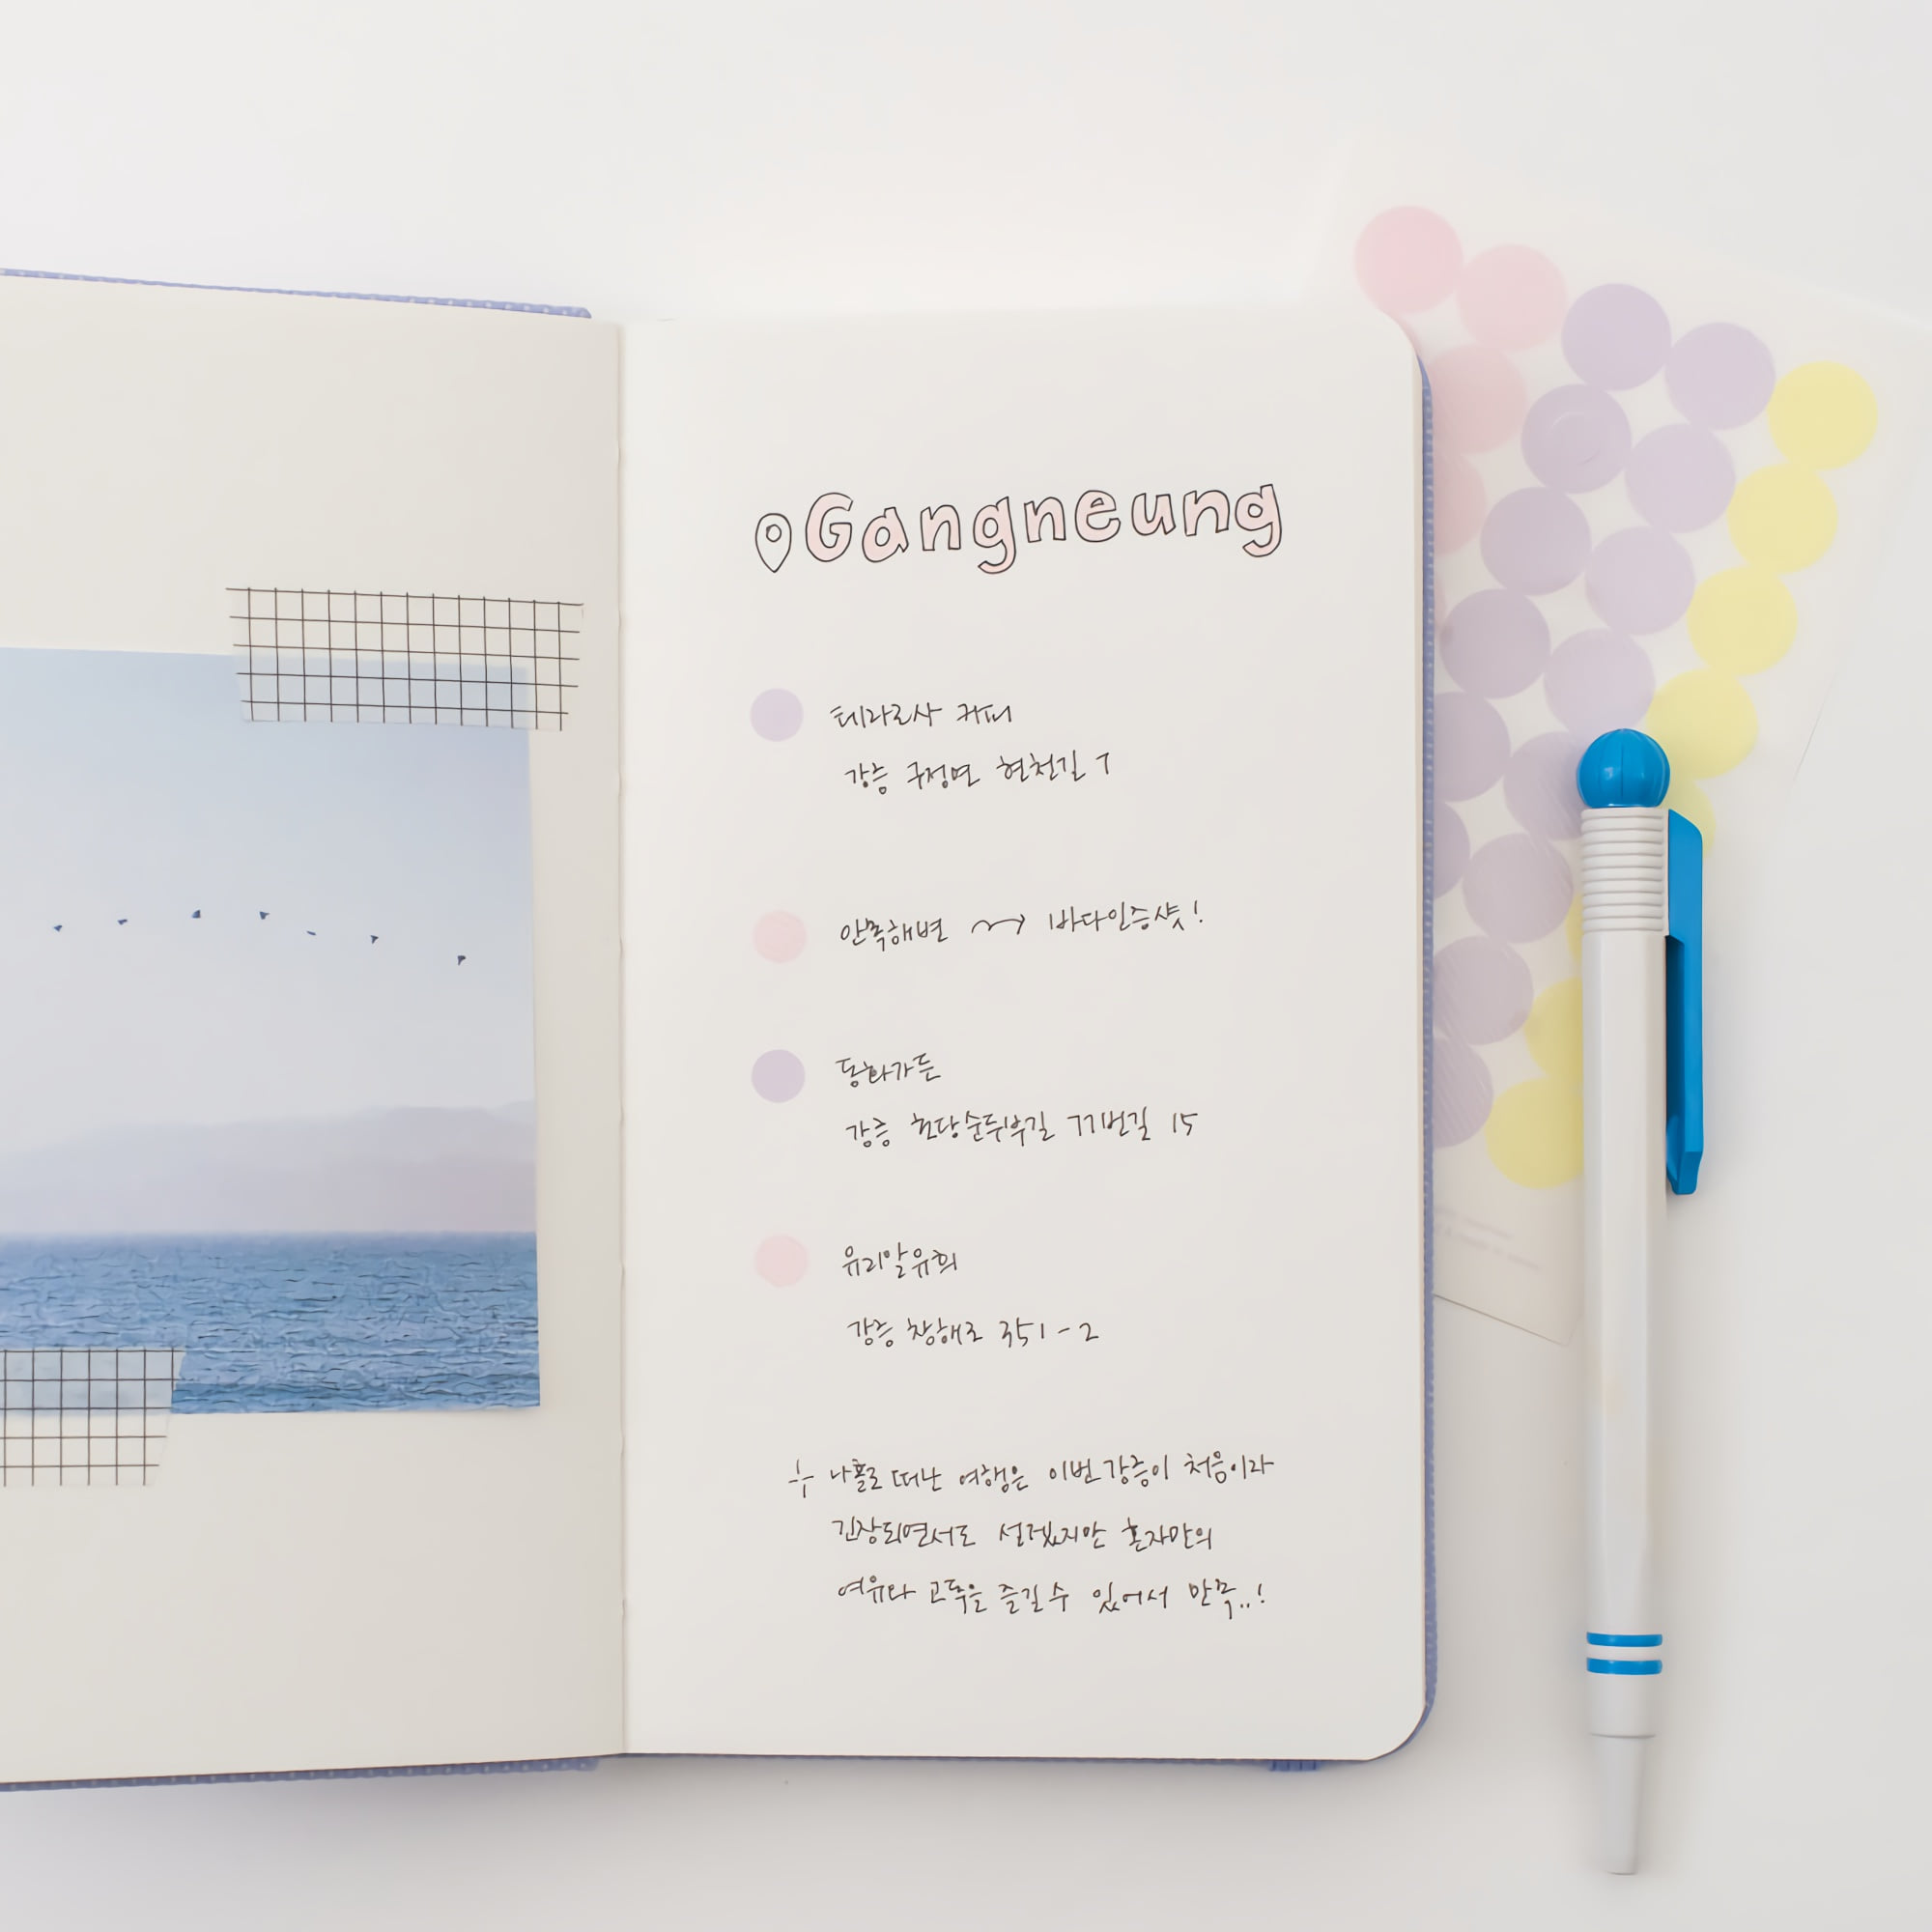 Gangneung
테라로사 커피
강릉 구정면 현천길 7
안목해변 → 바다인증샷!
동화가든
강릉 초당순두부길 77번길 15
유리알유희
강릉 창해로 351-2
+ 나홀로 떠난 여행은 이번 강릉이 처음이라
긴장되면서도 설렜지만 혼자만의
여유와 고독을 즐길 수 있어서 만족..!